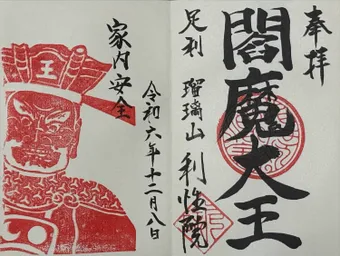 奉拝
閻魔大王
足利 瑠璃山 利性院
令和六年十二月八日
家内安全
王